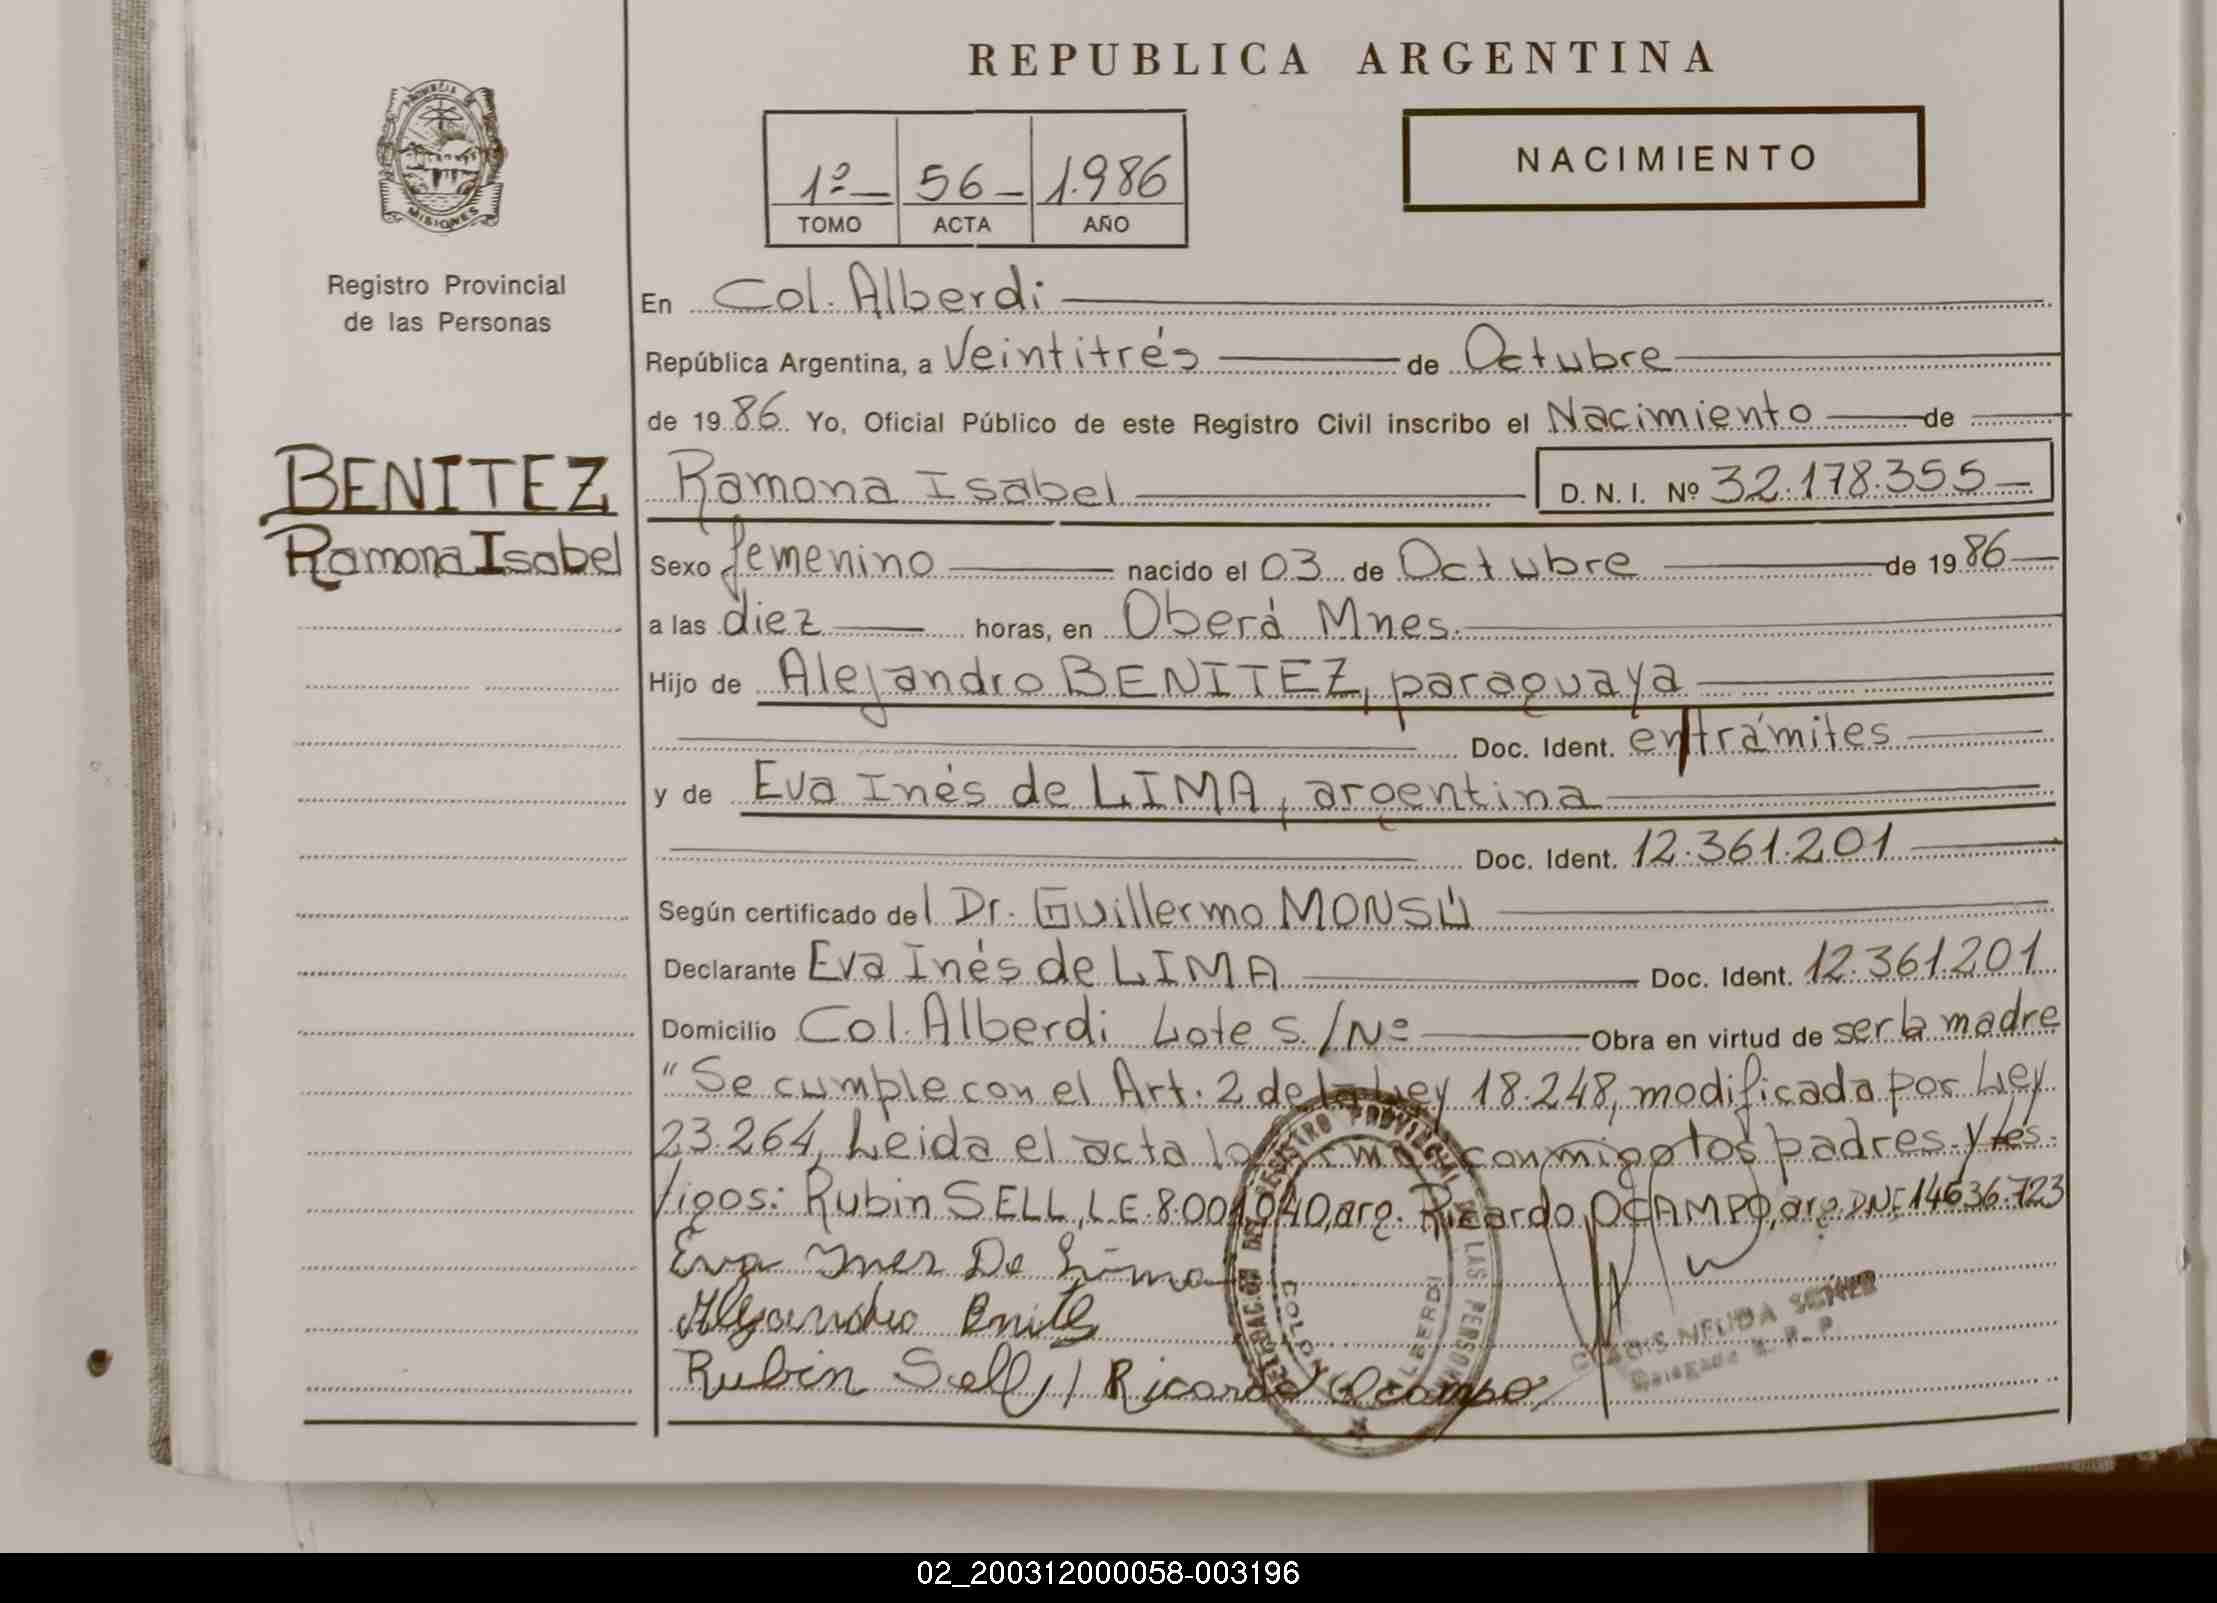 REPUBLICA ARGENTINA
PROVINCIA DE
MISIONES
Registro Provincial
de las Personas
1º
56
1.986
TOMO
ACTA
AÑO
NACIMIENTO
En Col. Alberdi
República Argentina, a Veintitrés de Octubre
de 1986 Yo, Oficial Público de este Registro Civil inscribo el Nacimiento de
BENITEZ
Ramona Isabel
Ramona Isabel D. N. I. Nº 32.178.355
Sexo femenino nacido el 03 de Octubre de 1986
a las diez horas, en Oberá Mnes.
Hijo de Alejandro BENITEZ, paraguaya
Doc. Ident. en trámites
y de Eva Inés de LIMA, argentina
Doc. Ident. 12.361.201
Según certificado del Dr. Guillermo MONSÚ
Declarante Eva Inés de LIMA Doc. Ident. 12.361.201
Domicilio Col. Alberdi Lote S/Nº Obra en virtud de ser la madre
"Se cumple con el Art. 2 de la Ley 18.248, modificada por Ley
23.264, Leida el acta conmigo los padres y tes-
tigos: Rubin SELL, L.E. 8.001.040, arg. Ricardo OCAMPO, arg. DNI 14636.723
Eva Ines De Lima
Alejandro Benitez
Rubin Sell Ricardo Ocampo
DELEGACION DEL REGISTRO PROVINCIAL DE LAS PERSONAS
COLONIA ALBERDI
NELIDA
Delegada R. P. P.
02_200312000058-003196